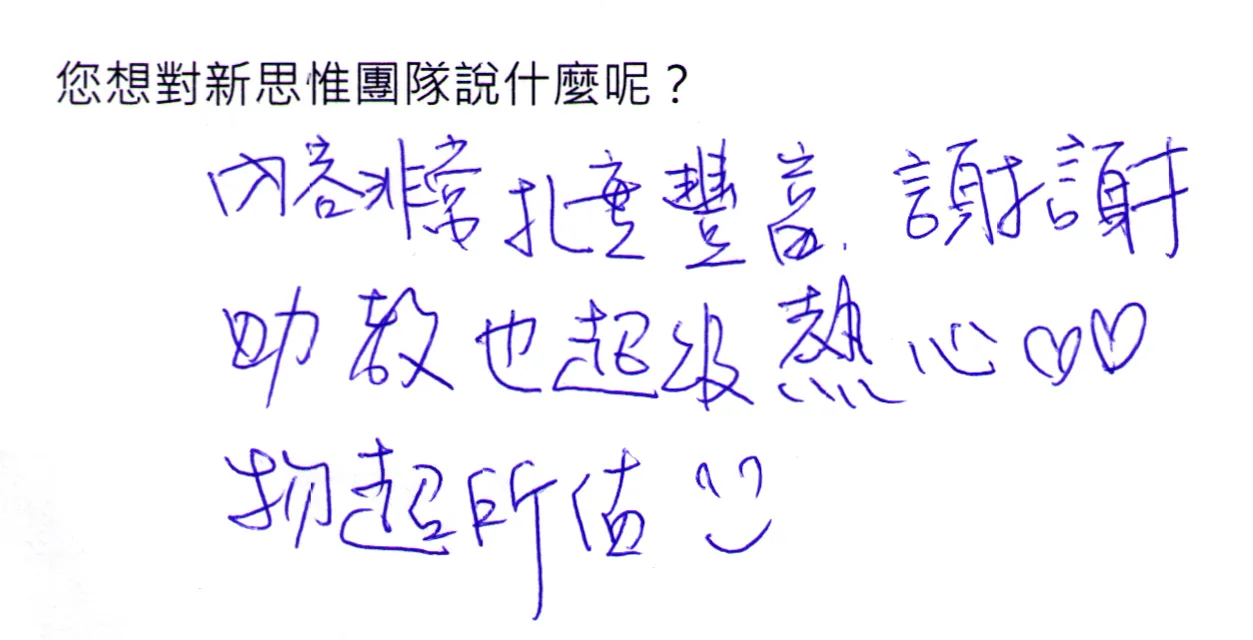 您想對新思惟團隊說什麼呢？
內容非常扎實豐富. 謝謝
助教也超級熱心♡♡
物超所值